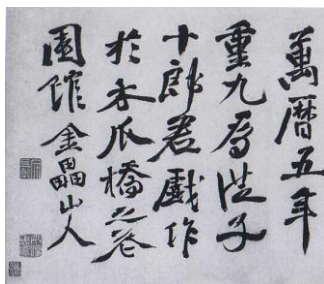 萬曆五年
重九為子
十郎君戲作
於瓜橋之
園館金畾山人